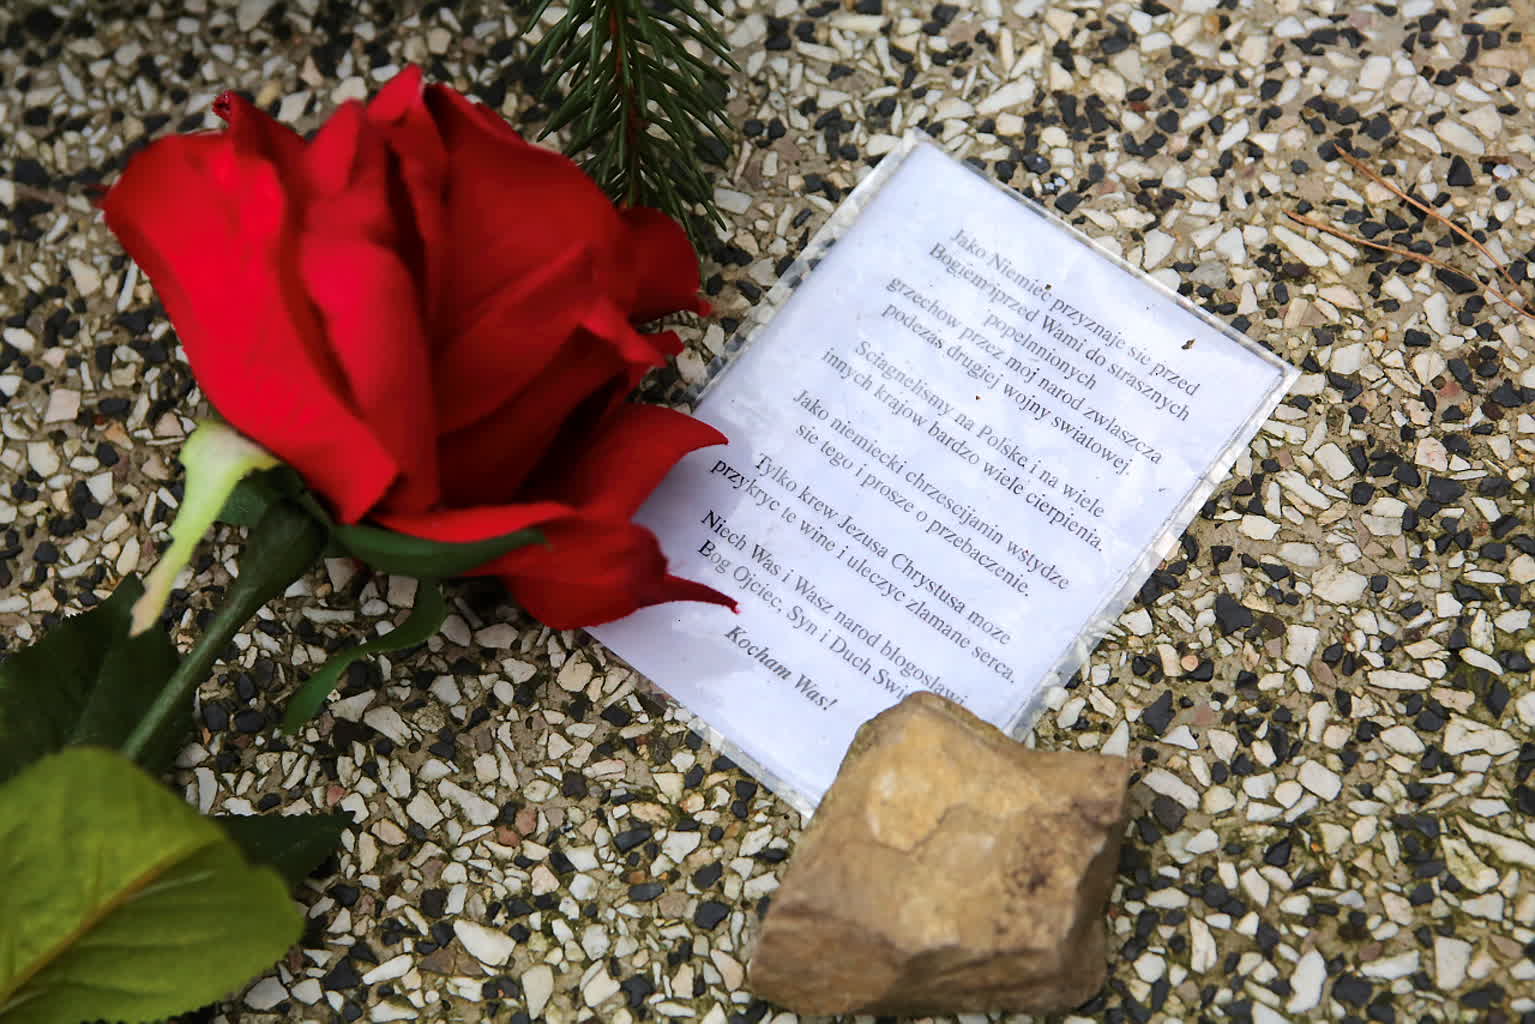 Jako Niemiec przyznaje sie przed
Bogiem i przed Wami do strasznych
popelnionych
grzechow przez moj narod zwlaszcza
podezas drugiej wojny swiatowej.
Sciagnelismy na Polske i na wiele
innych krajow bardzo wiele cierpienia.
Jako niemiecki chrzescijanin wstydze
sie tego i prosze o przebaczenie.
Tylko krew Jezusa Chrystusa moze
przykryc te wine i uleczyc zlamane serca.
Niech Was i Wasz narod blogoslawi
Bog Ojciec, Syn i Duch
Kocham Was!